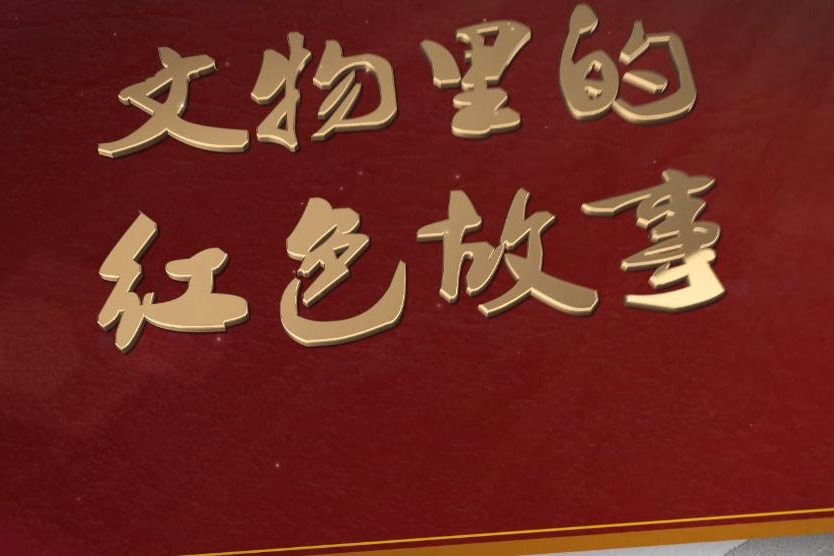 文物里的
红色故事